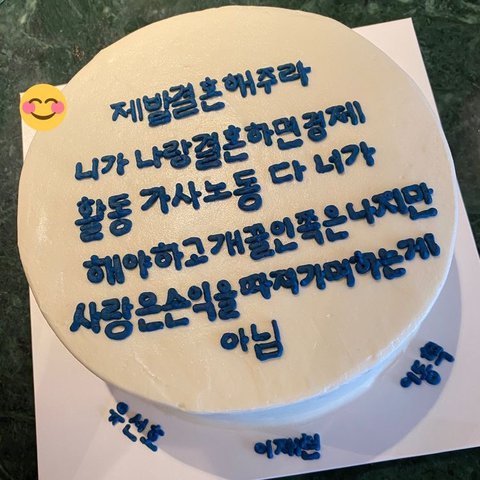 제발결혼해주라
니가 나랑결혼하면경제
활동 가사노동 다 너가
해야하고개꼴인쪽은나지만
사랑은손익을따져가며하는게
아님
유선호
이재현
이동혁